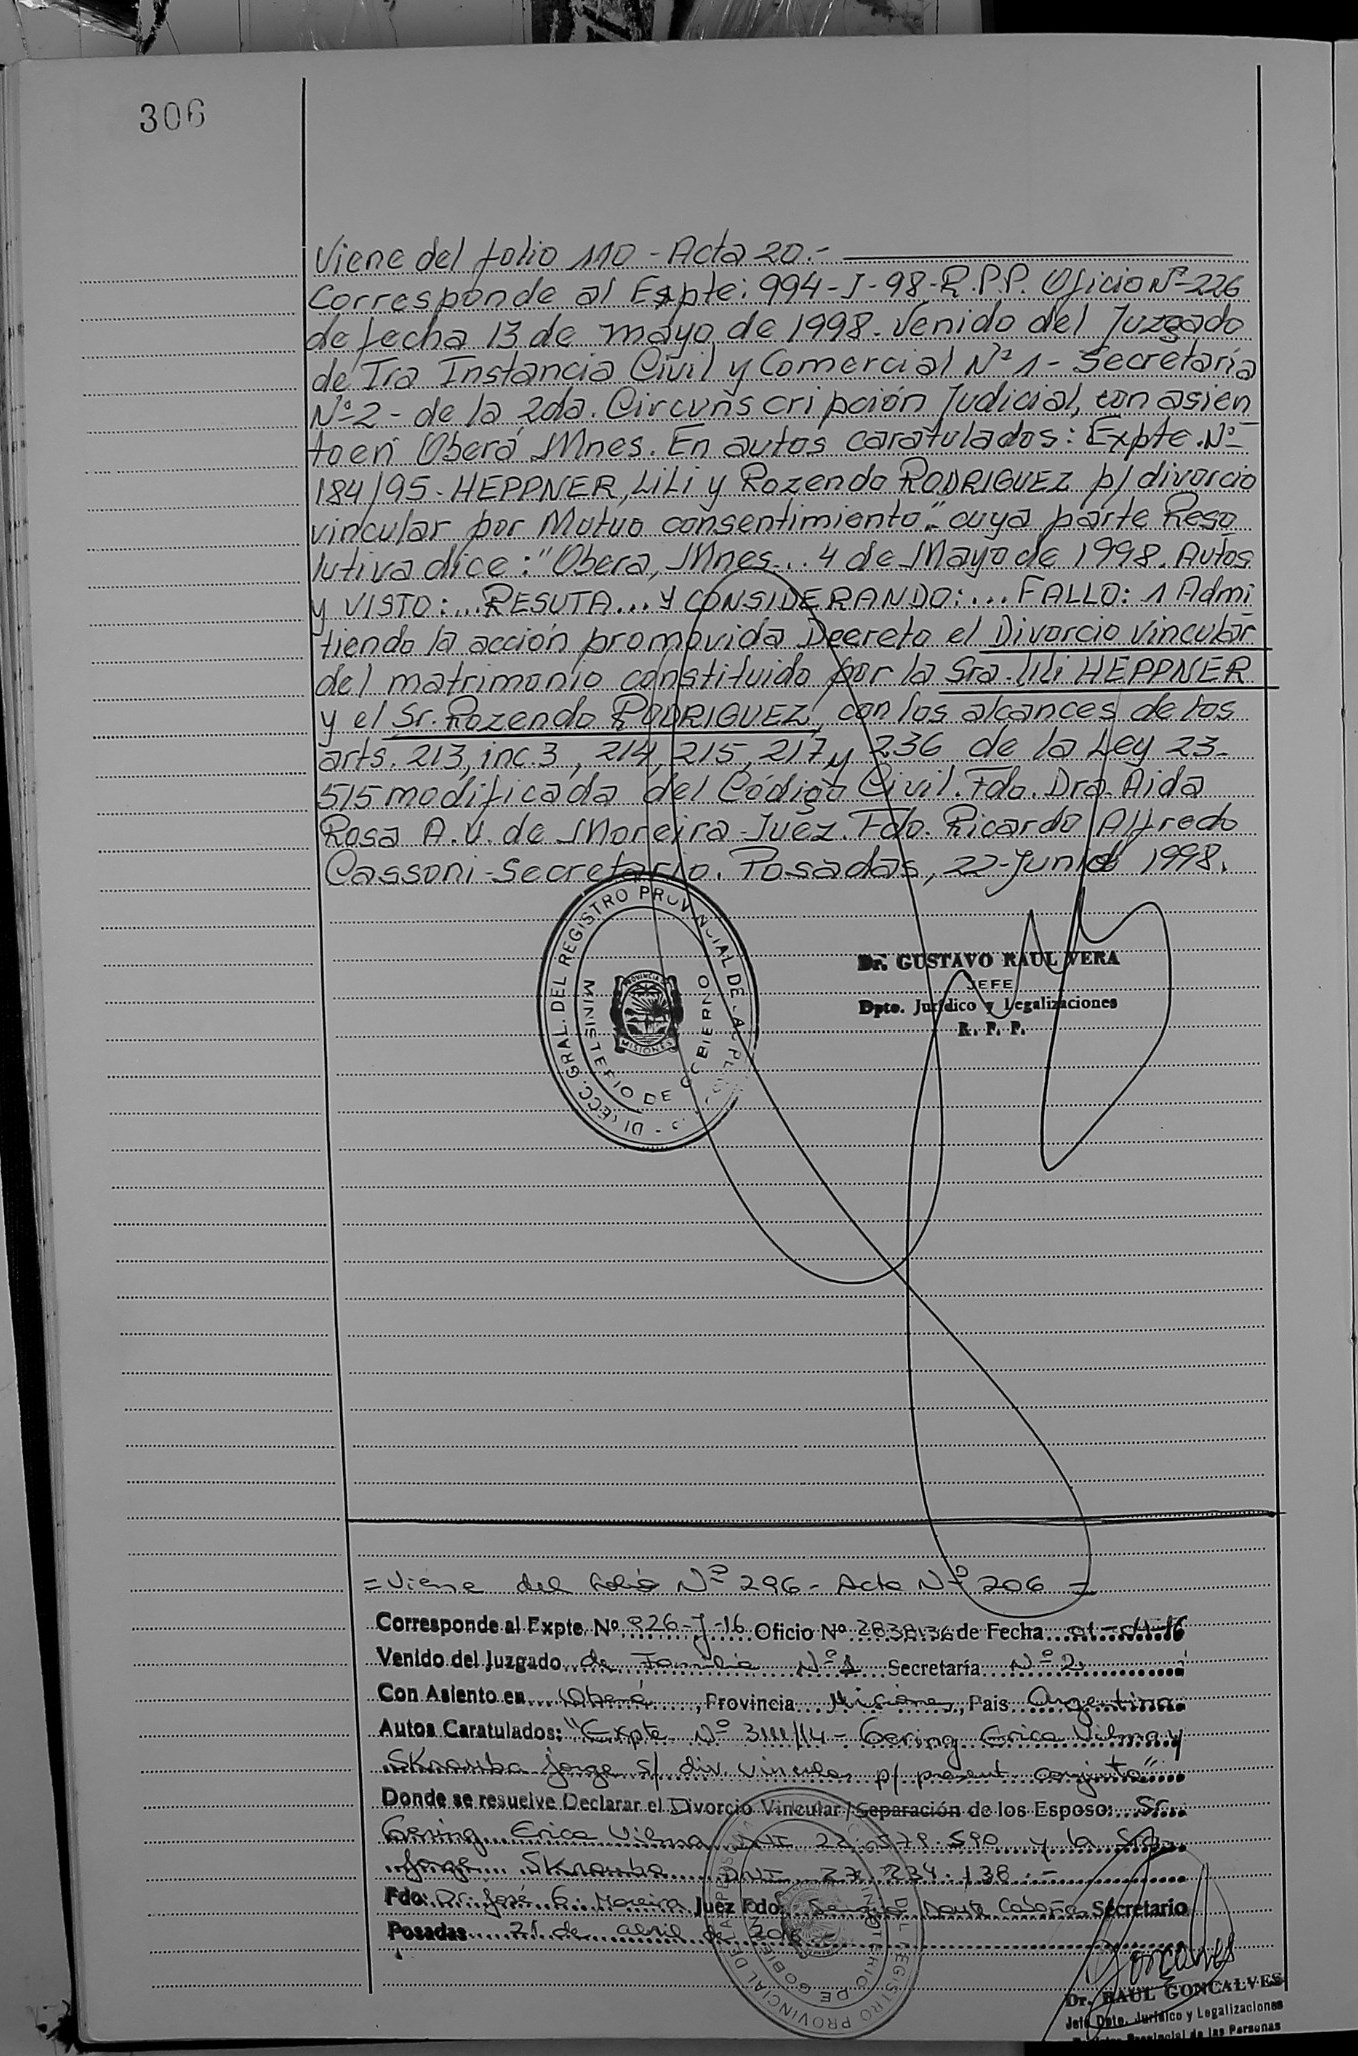 306
Viene del folio 110 - Acta 20.-
Corresponde al Expte: 994-J-98-R.P.P. Oficio Nº 226
de fecha 13 de mayo de 1998. Venido del Juzgado
de Ira Instancia Civil y Comercial Nº 1 - Secretaría
Nº 2 - de la 2da. Circunscripción Judicial, con asien
to en Oberá Mnes. En autos caratulados: Expte. Nº
184/95- HEPPNER, LiLi y Rozendo RODRIGUEZ p/ divorcio
vincular por Mutuo consentimiento." cuya parte Reso
lutiva dice: "Obera, Mnes... 4 de Mayo de 1998. Autos
y VISTO:... RESULTA... y CONSIDERANDO:... FALLO: 1 Admi
tiendo la acción promovida Decreto el Divorcio vincular
del matrimonio constituido por la Sra. Lili HEPPNER
y el Sr. Rozendo RODRIGUEZ, con los alcances de los
arts. 213, inc. 3, 214, 215, 217 y 236 de la Ley 23-
515 modificada del Código Civil. Fdo. Dra. Aida
Rosa A.V. de Moreira - Juez. Fdo. Ricardo Alfredo
Cassoni - Secretario. Posadas, 22-Junio 1998.
DIRECC. GRAL. DEL REGISTRO PROVINCIAL DE
MINISTERIO DE GOBIERNO
PROVINCIA
MISIONES
Dr. GUSTAVO RAUL VERA
JEFE
Dpto. Jurídico y Legalizaciones
R. P. P.
= Viene del folio Nº 296 - Acta Nº 206 =
Corresponde al Expte. Nº 926-J-16 Oficio Nº 283836 de Fecha 01-04-16
Venido del Juzgado de Familia Nº 1 Secretaría Nº 2
Con Asiento en Oberá, Provincia Misiones, Pais Argentina
Autos Caratulados: "Expte Nº 3111/14 - Gering Erica Vilma y
Skramba Jorge s/ div. vincular p/ present conjunta"
Donde se resuelve Declarar el Divorcio Vincular / Separación de los Esposo: Sr.
Gering Erica Vilma DNI 22.579.590 y la Sra.
Jorge Skramba DNI 27.234.138.-
Fdo: Dr. José G. Moreira Juez Fdo: Secretario
Posadas 21 de abril de 2016
REGISTRO PROVINCIAL DE LAS PERSONAS
MINISTERIO DE GOBIERNO
Goncalves
Dr. RAUL GONCALVES
Jefe Dpto. Jurídico y Legalizaciones
Registro Provincial de las Personas